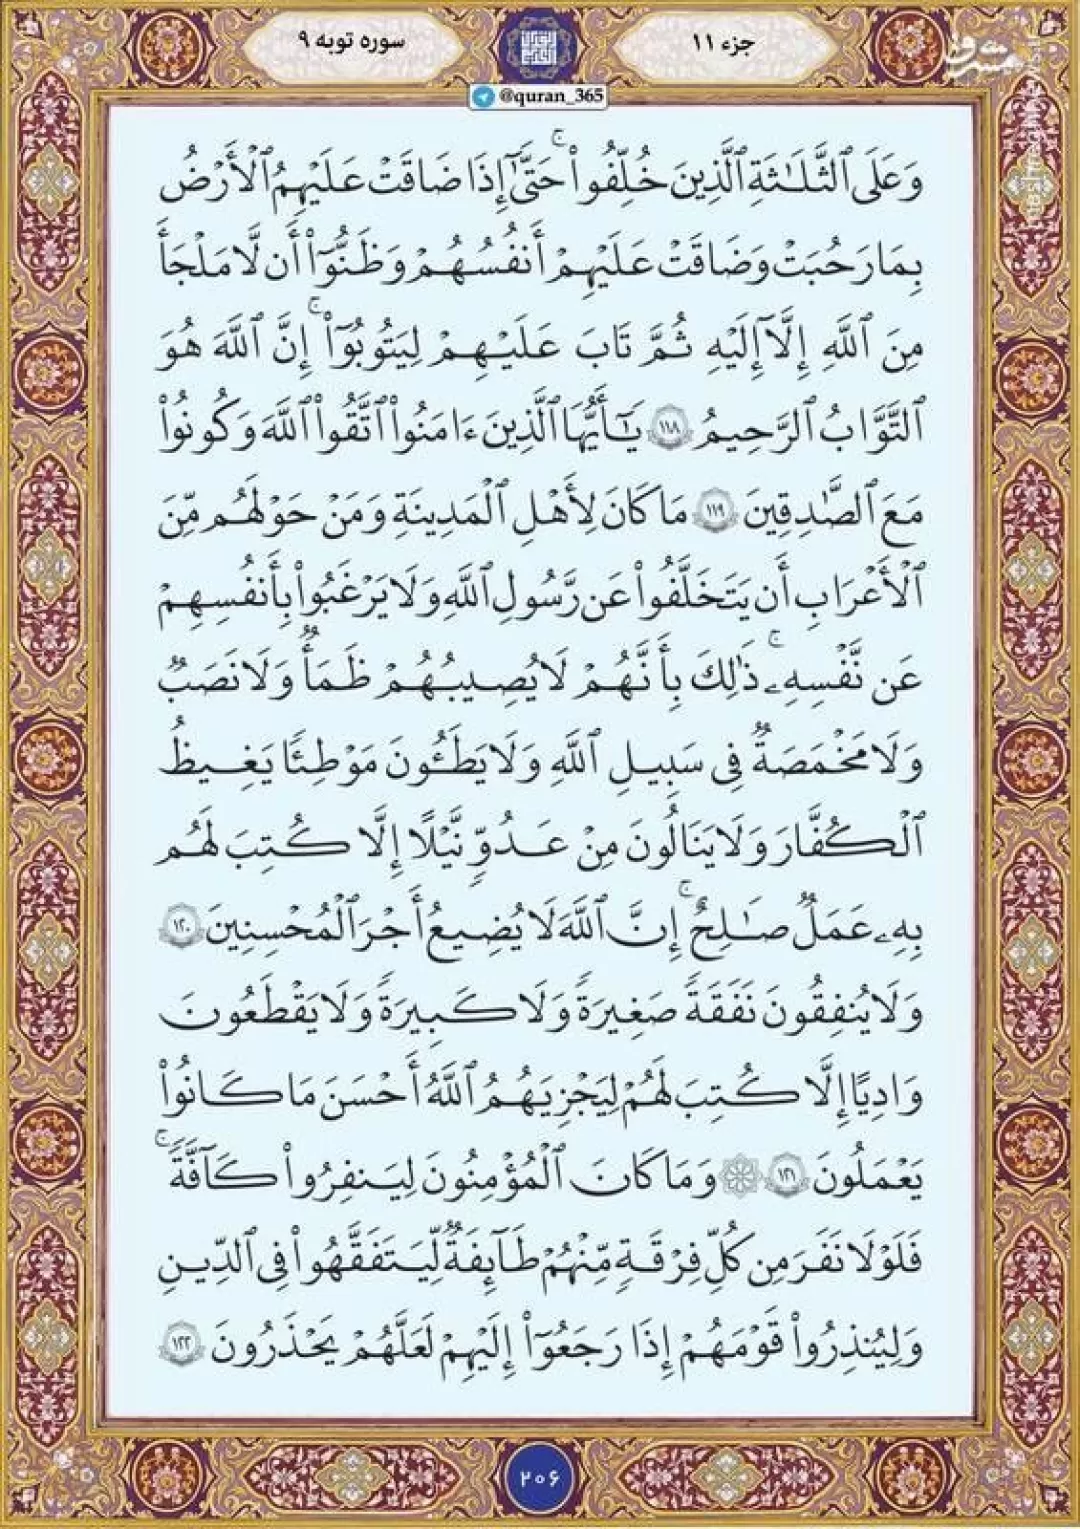 جزء ۱۱
سوره توبه ۹
مشرق
@quran_365
وَعَلَى ٱلثَّلَـٰثَةِ ٱلَّذِينَ خُلِّفُوا۟ حَتَّىٰٓ إِذَا ضَاقَتْ عَلَيْهِمُ ٱلْأَرْضُ
بِمَا رَحُبَتْ وَضَاقَتْ عَلَيْهِمْ أَنفُسُهُمْ وَظَنُّوٓا۟ أَن لَّا مَلْجَأَ
مِنَ ٱللَّهِ إِلَّآ إِلَيْهِ ثُمَّ تَابَ عَلَيْهِمْ لِيَتُوبُوٓا۟ ۚ إِنَّ ٱللَّهَ هُوَ
ٱلتَّوَّابُ ٱلرَّحِيمُ ١١٨ يَـٰٓأَيُّهَا ٱلَّذِينَ ءَامَنُوا۟ ٱتَّقُوا۟ ٱللَّهَ وَكُونُوا۟
مَعَ ٱلصَّـٰدِقِينَ ١١٩ مَا كَانَ لِأَهْلِ ٱلْمَدِينَةِ وَمَنْ حَوْلَهُم مِّنَ
ٱلْأَعْرَابِ أَن يَتَخَلَّفُوا۟ عَن رَّسُولِ ٱللَّهِ وَلَا يَرْغَبُوا۟ بِأَنفُسِهِمْ
عَن نَّفْسِهِۦ ۚ ذَٰلِكَ بِأَنَّهُمْ لَا يُصِيبُهُمْ ظَمَأٌ وَلَا نَصَبٌ
وَلَا مَخْمَصَةٌ فِى سَبِيلِ ٱللَّهِ وَلَا يَطَـُٔونَ مَوْطِئًا يَغِيظُ
ٱلْكُفَّارَ وَلَا يَنَالُونَ مِنْ عَدُوٍّ نَّيْلًا إِلَّا كُتِبَ لَهُم
بِهِۦ عَمَلٌ صَـٰلِحٌ ۚ إِنَّ ٱللَّهَ لَا يُضِيعُ أَجْرَ ٱلْمُحْسِنِينَ ١٢٠
وَلَا يُنفِقُونَ نَفَقَةً صَغِيرَةً وَلَا كَبِيرَةً وَلَا يَقْطَعُونَ
وَادِيًا إِلَّا كُتِبَ لَهُمْ لِيَجْزِيَهُمُ ٱللَّهُ أَحْسَنَ مَا كَانُوا۟
يَعْمَلُونَ ١٢١ ۞ وَمَا كَانَ ٱلْمُؤْمِنُونَ لِيَنفِرُوا۟ كَآفَّةً ۚ
فَلَوْلَا نَفَرَ مِن كُلِّ فِرْقَةٍ مِّنْهُمْ طَآئِفَةٌ لِّيَتَفَقَّهُوا۟ فِى ٱلدِّينِ
وَلِيُنذِرُوا۟ قَوْمَهُمْ إِذَا رَجَعُوٓا۟ إِلَيْهِمْ لَعَلَّهُمْ يَحْذَرُونَ ١٢٢
۲۰۶